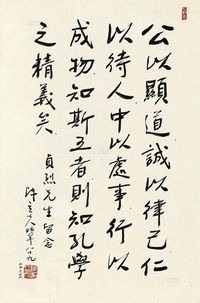 公以顯道誠以律己仁
以待人中以處事行以
成物知斯五者則知孔學
之精義矣
貞烈先生留念
陳立夫 時年八十九